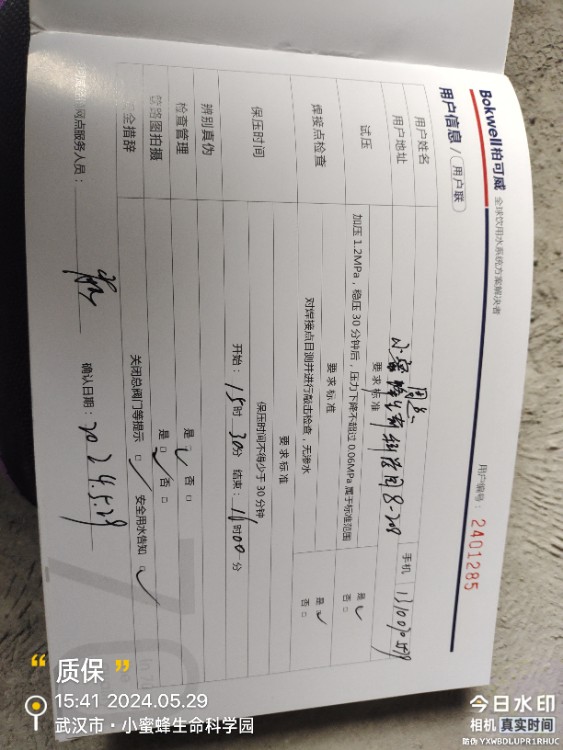 Bokwell柏可威 全球饮用水系统方案解决者
用户信息 / 用户联
用户编号: 2401285
用户姓名 周总 手机
用户地址 小蜜蜂生命科学园8-208
试压 要求标准
加压 1.2MPa，稳压 30 分钟后，压力下降不超过 0.06MPa 属于标准范围 是 否
焊接点检查 要求标准
对焊接点目测并进行敲击检查，无渗水 是 否
保压时间 要求标准
保压时间不得少于 30 分钟
开始: 15时 30分 结束: 16时00分
辨别真伪 是 否
检查管理 是 否
管路图拍摄
安全措辞 关闭总阀门等提示 安全用水告知
网点服务人员: 确认日期: 2024.5.29
“质保”
15:41 2024.05.29
武汉市·小蜜蜂生命科学园
今日水印
相机 真实时间
防伪 YXWBDLUPR1RHUC